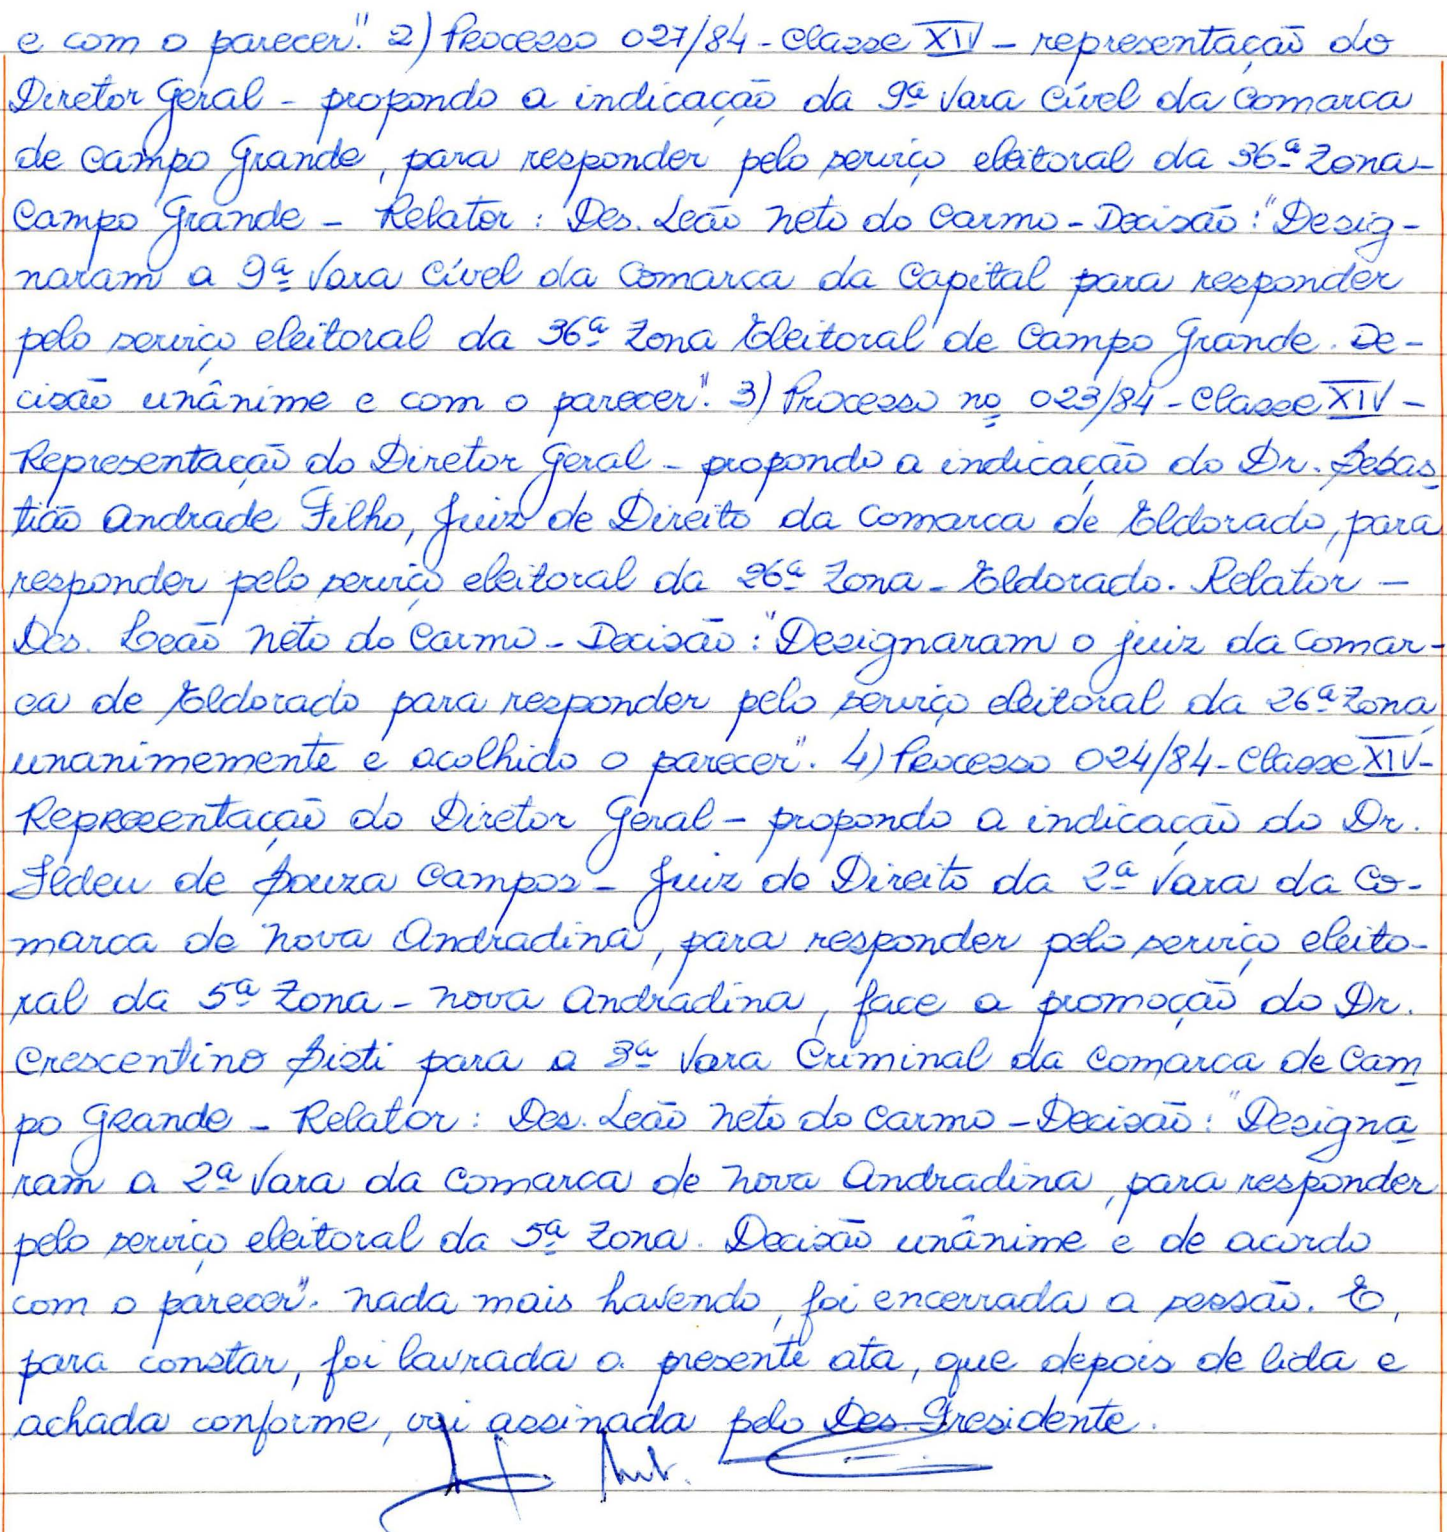 e com o parecer". 2) Processo 027/84 - Classe XIV - representação do
Diretor Geral - propondo a indicação da 9ª Vara Cível da Comarca
de Campo Grande, para responder pelo serviço eleitoral da 36ª Zona -
Campo Grande - Relator: Des. Leão Neto do Carmo - Decisão: "Desig-
naram a 9ª Vara Cível da Comarca da Capital para responder
pelo serviço eleitoral da 36ª Zona Eleitoral de Campo Grande. De-
cisão unânime e com o parecer". 3) Processo nº 023/84 - Classe XIV -
Representação do Diretor Geral - propondo a indicação do Dr. Sebas
tião Andrade Filho, Juiz de Direito da Comarca de Eldorado, para
responder pelo serviço eleitoral da 26ª Zona - Eldorado. Relator -
Des. Leão Neto do Carmo - Decisão: "Designaram o juiz da Comar-
ca de Eldorado para responder pelo serviço eleitoral da 26ª Zona,
unanimemente e acolhido o parecer". 4) Processo 024/84 - Classe XIV -
Representação do Diretor Geral - propondo a indicação do Dr.
de Souza Campos - Juiz de Direito da 2ª Vara da Co-
marca de Nova Andradina, para responder pelo serviço eleito-
ral da 5ª Zona - Nova Andradina, face a promoção do Dr.
Crescentino Sisti para a 3ª Vara Criminal da Comarca de Cam
po Grande - Relator: Des. Leão Neto do Carmo - Decisão: "Designa
ram a 2ª Vara da Comarca de Nova Andradina, para responder
pelo serviço eleitoral da 5ª Zona. Decisão unânime e de acordo
com o parecer". Nada mais havendo, foi encerrada a sessão. E,
para constar, foi lavrada a presente ata, que depois de lida e
achada conforme, vai assinada pelo Des. Presidente.